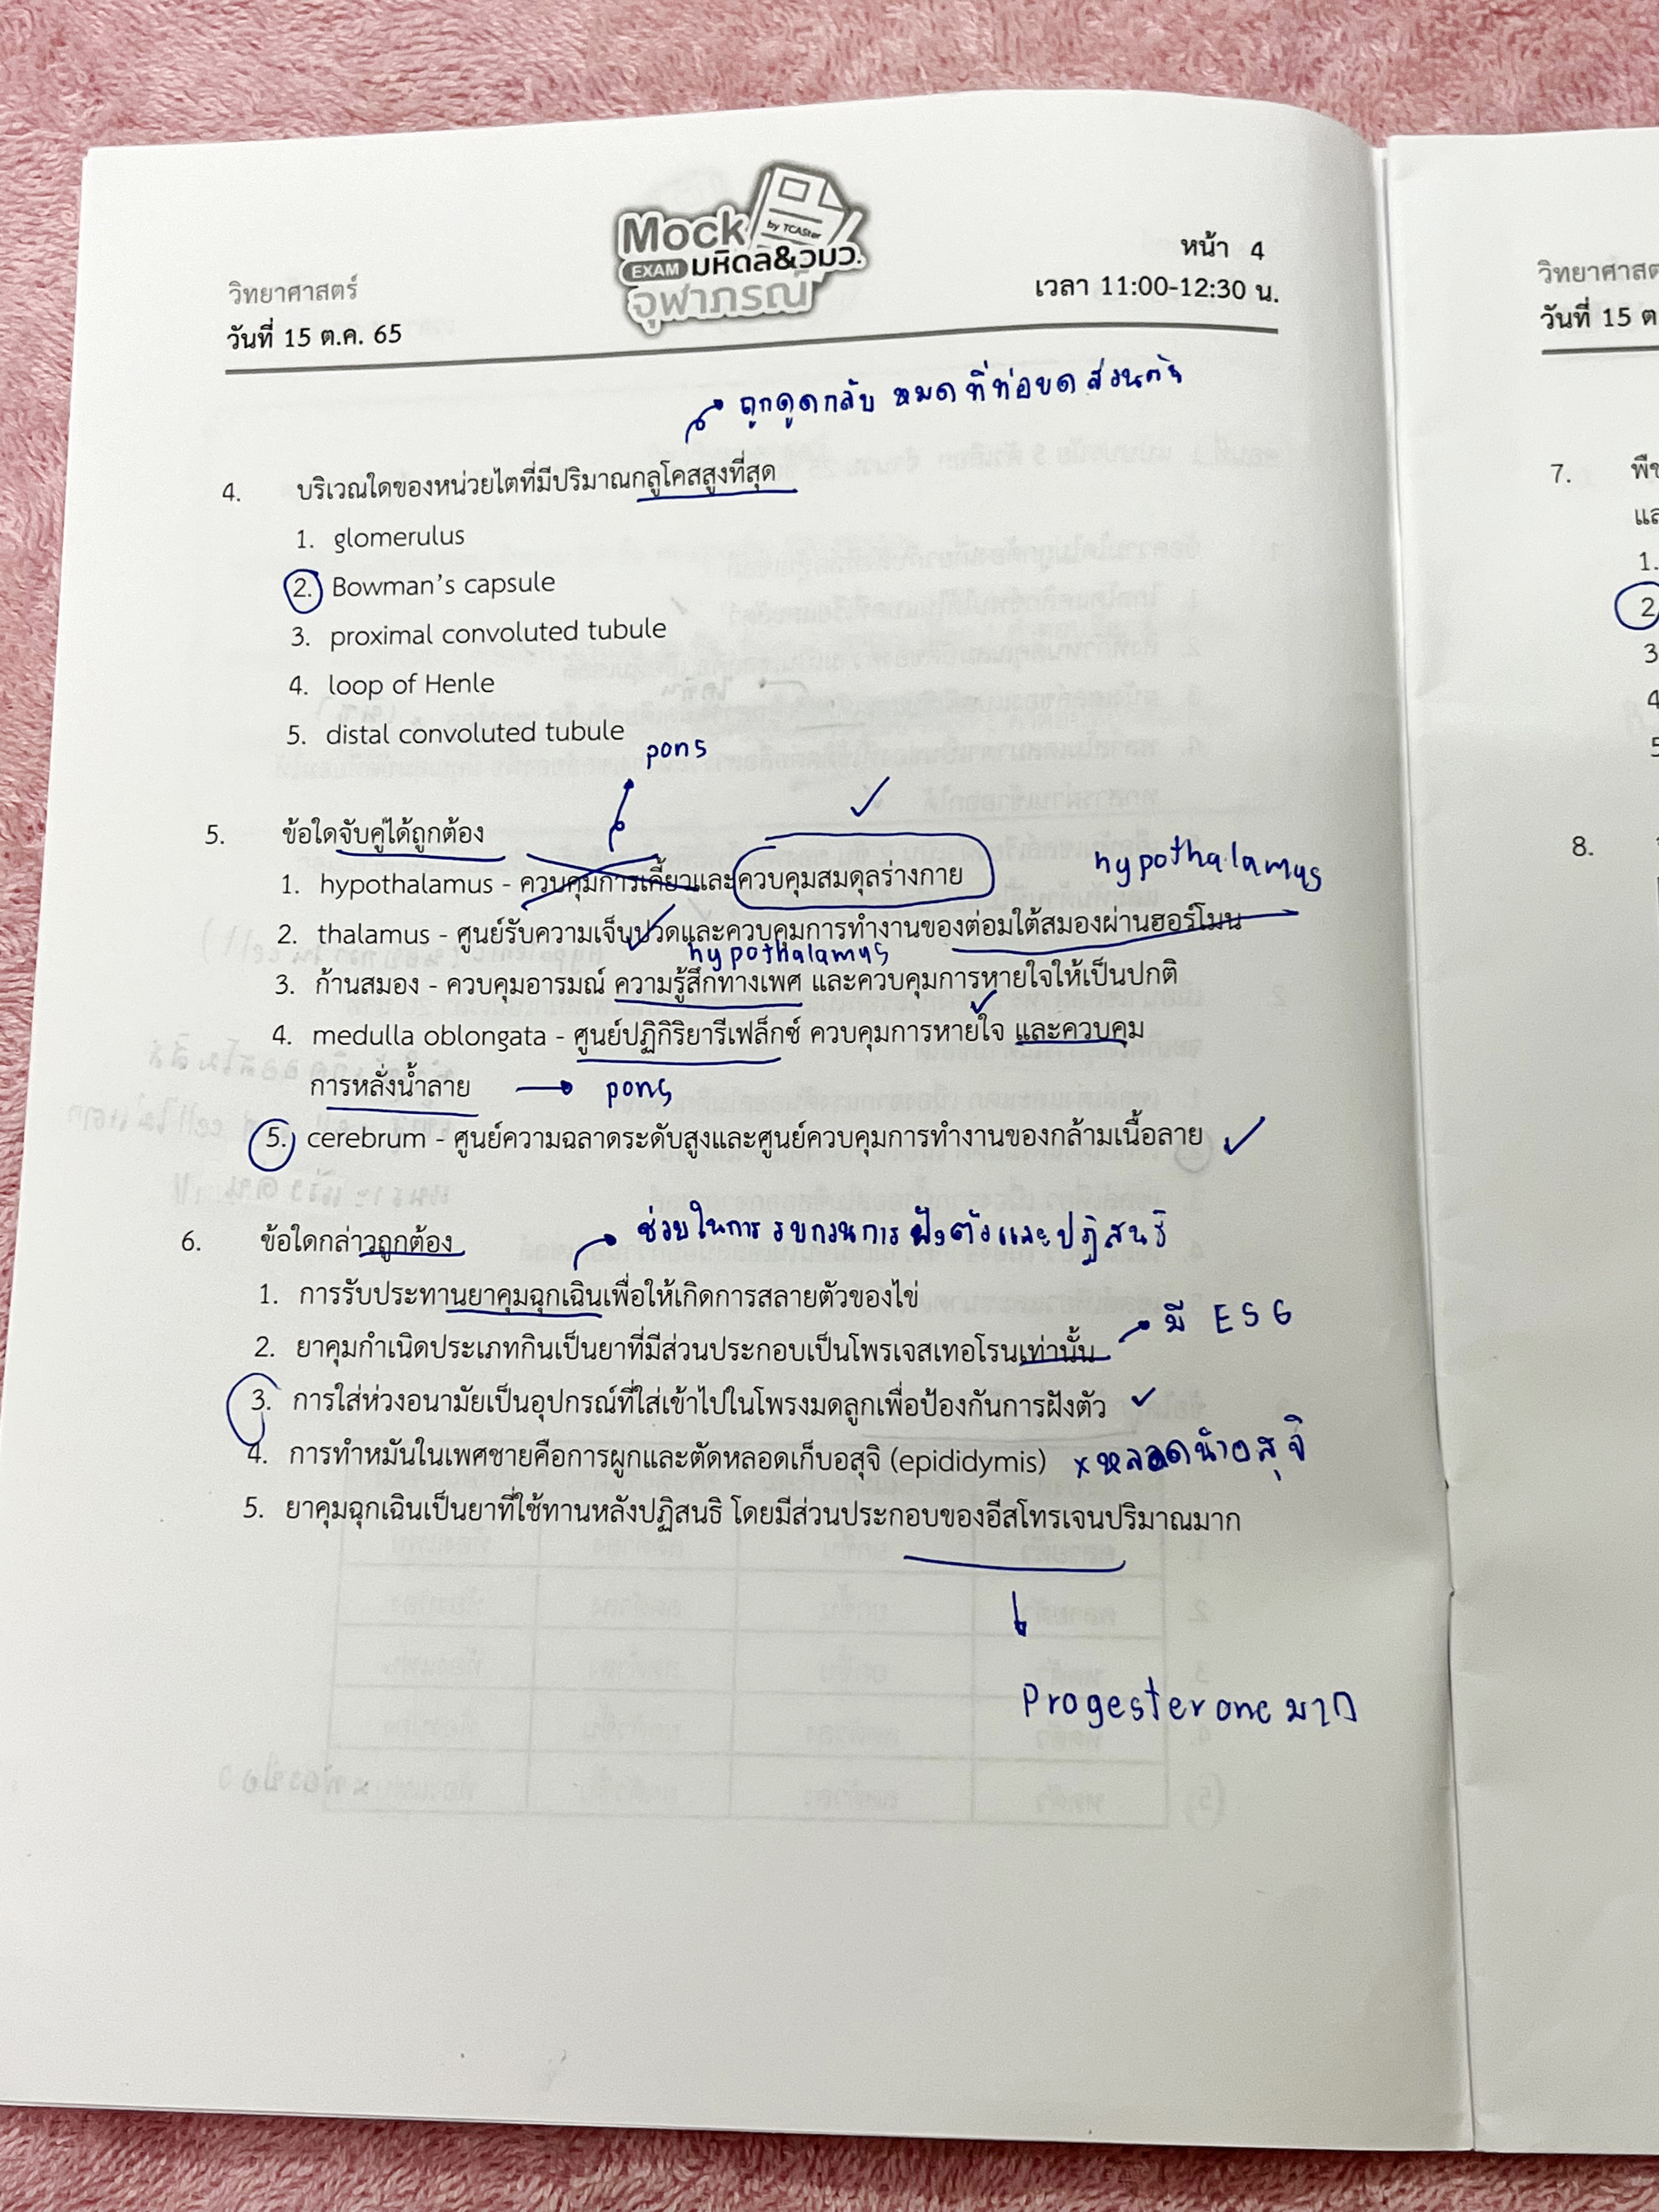 วิทยาศาสตร์
วันที่ 15 ต.ค. 65
Mock
by TCASter
EXAM มหิดล&วมว.
จุฬาภรณ์
หน้า 4
เวลา 11:00-12:30 น.
ถูกดูดกลับ หมด ที่ท่อขด ส่วนต้น
4. บริเวณใดของหน่วยไตที่มีปริมาณกลูโคสสูงที่สุด
1. glomerulus
2. Bowman's capsule
3. proximal convoluted tubule
4. loop of Henle
5. distal convoluted tubule
pons
5. ข้อใดจับคู่ได้ถูกต้อง
1. hypothalamus - ควบคุมการเคี้ยวและควบคุมสมดุลร่างกาย
hypothalamus
2. thalamus - ศูนย์รับความเจ็บปวดและควบคุมการทำงานของต่อมใต้สมองผ่านฮอร์โมน
hypothalamus
3. ก้านสมอง - ควบคุมอารมณ์ ความรู้สึกทางเพศ และควบคุมการหายใจให้เป็นปกติ
4. medulla oblongata - ศูนย์ปฏิกิริยารีเฟล็กซ์ ควบคุมการหายใจ และควบคุม
การหลั่งน้ำลาย → pons
5. cerebrum - ศูนย์ความฉลาดระดับสูงและศูนย์ควบคุมการทำงานของกล้ามเนื้อลาย ✓
ช่วยในการ รบกวนการ ฝังตัวและปฏิสนธิ
6. ข้อใดกล่าวถูกต้อง
1. การรับประทานยาคุมฉุกเฉินเพื่อให้เกิดการสลายตัวของไข่
มี ESG
2. ยาคุมกำเนิดประเภทกินเป็นยาที่มีส่วนประกอบเป็นโพรเจสเทอโรนเท่านั้น
3. การใส่ห่วงอนามัยเป็นอุปกรณ์ที่ใส่เข้าไปในโพรงมดลูกเพื่อป้องกันการฝังตัว ✓
4. การทำหมันในเพศชายคือการผูกและตัดหลอดเก็บอสุจิ (epididymis) x หลอดนำอสุจิ
5. ยาคุมฉุกเฉินเป็นยาที่ใช้ทานหลังปฏิสนธิ โดยมีส่วนประกอบของอีสโทรเจนปริมาณมาก
Progesterone มาก
วันที่ 15 ต
7. พืช
1.
2
3
4
5
8.